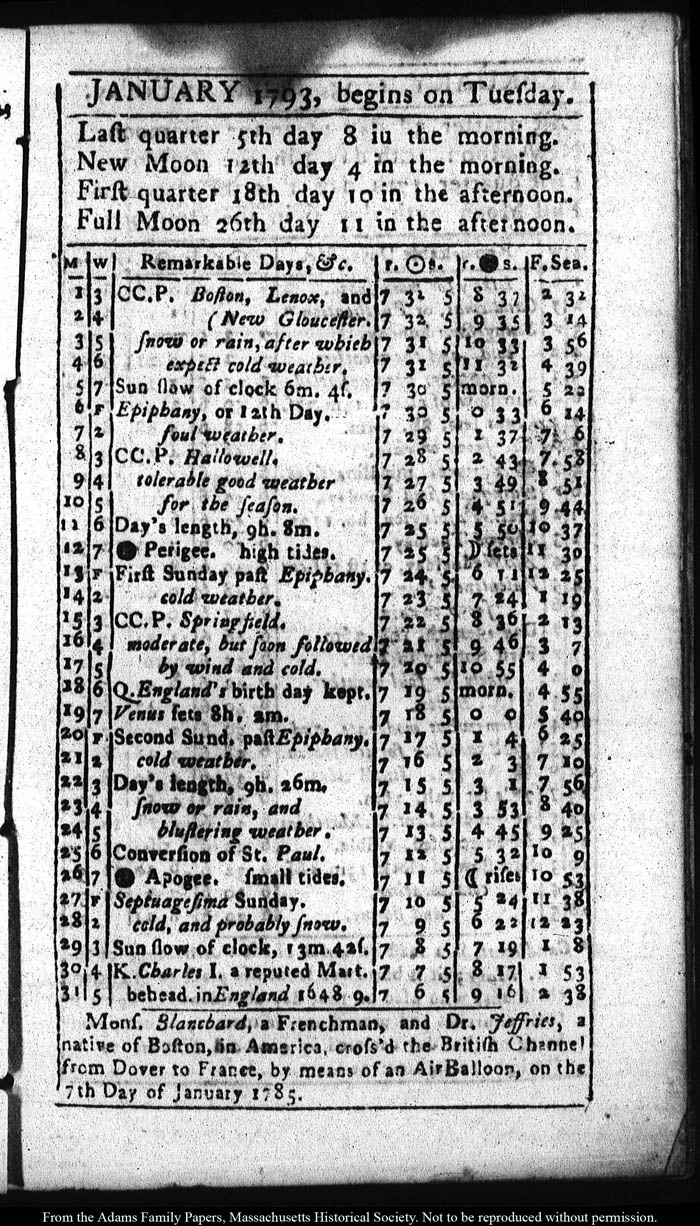 JANUARY 1793, begins on Tueſday.
Laſt quarter 5th day 8 iu the morning.
New Moon 12th day 4 in the morning.
Firſt quarter 18th day 10 in the afternoon.
Full Moon 26th day 11 in the afternoon.
M W Remarkable Days, &c. r. ☉ s. r. ● s. F. Sea.
1 3 CC.P. Boſton, Lenox, and 7 32 5 8 37 2 32
2 4 (New Glouceſter. 7 32 5 9 35 3 14
3 5 ſnow or rain, after which 7 31 5 10 33 3 56
4 6 expect cold weather. 7 31 5 11 32 4 39
5 7 Sun ſlow of clock 6m. 4ſ. 7 30 5 morn. 5 22
6 F Epiphany, or 12th Day. 7 30 5 0 33 6 14
7 2 foul weather. 7 29 5 1 37 7 6
8 3 CC.P. Hallowell. 7 28 5 2 43 7 58
9 4 tolerable good weather 7 27 5 3 49 8 51
10 5 for the ſeaſon. 7 26 5 4 51 9 44
11 6 Day's length, 9h. 8m. 7 25 5 5 50 10 37
12 7 ● Perigee. high tides. 7 25 5 ☽ ſets 11 30
13 F Firſt Sunday paſt Epiphany. 7 24 5 6 11 12 25
14 2 cold weather. 7 23 5 7 24 1 19
15 3 CC.P. Springfield. 7 22 5 8 36 2 13
16 4 moderate, but ſoon followed 7 21 5 9 46 3 7
17 5 by wind and cold. 7 20 5 10 55 4 0
18 6 Q. England's birth day kept. 7 19 5 morn. 4 55
19 7 Venus ſets 8h. am. 7 18 5 0 0 5 40
20 F Second Sund. paſt Epiphany. 7 17 5 1 4 6 25
21 2 cold weather. 7 16 5 2 3 7 10
22 3 Day's length, 9h. 26m. 7 15 5 3 1 7 56
23 4 ſnow or rain, and 7 14 5 3 53 8 40
24 5 bluſtering weather. 7 13 5 4 45 9 25
25 6 Converſion of St. Paul. 7 12 5 5 32 10 9
26 7 ● Apogee. ſmall tides. 7 11 5 ☾ riſes 10 53
27 F Septuageſima Sunday. 7 10 5 5 24 11 38
28 2 cold, and probably ſnow. 7 9 5 6 22 12 23
29 3 Sun ſlow of clock, 13m. 42ſ. 7 8 5 7 19 1 8
30 4 K. Charles I. a reputed Mart. 7 7 5 8 17 1 53
31 5 behead. in England 1648 9. 7 6 5 9 16 2 38
Monſ. Blanchard, a Frenchman, and Dr. Jeffries, a
native of Boſton, in America, croſs'd the Britiſh Channel
from Dover to France, by means of an Air Balloon, on the
7th Day of January 1785.
From the Adams Family Papers, Massachusetts Historical Society. Not to be reproduced without permission.